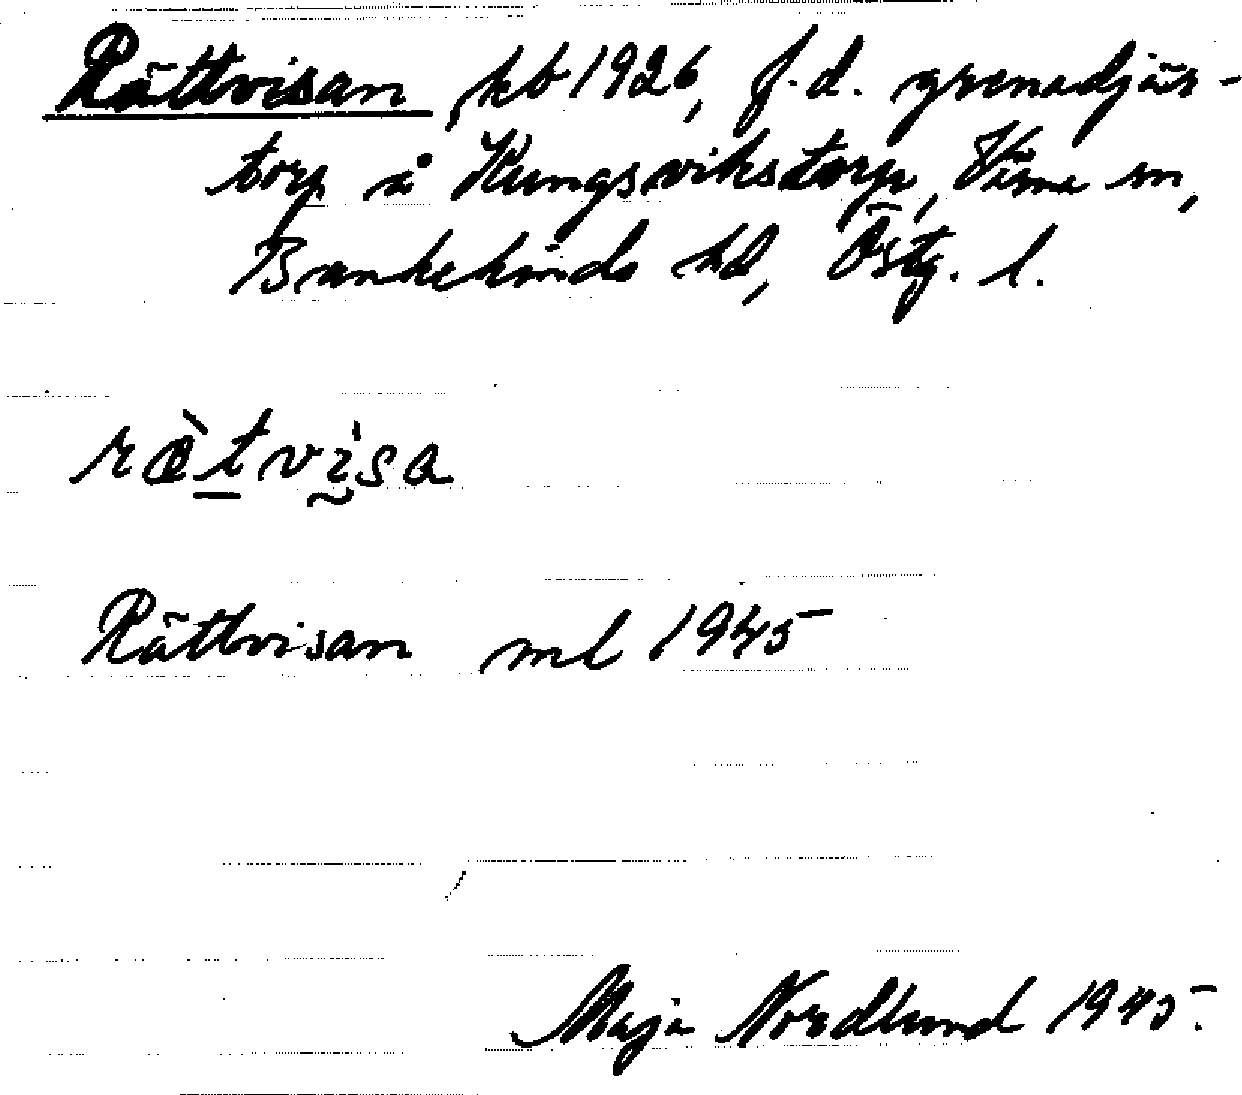 Rättvisan, kb 1926, f.d. grenadjär-
torp å Kungsvikstorp, Vårna sn,
Bankekinds hd, Östg. l.
ræ̀tvisa
Rättvisan ml 1945
Maja Nordlund 1945.